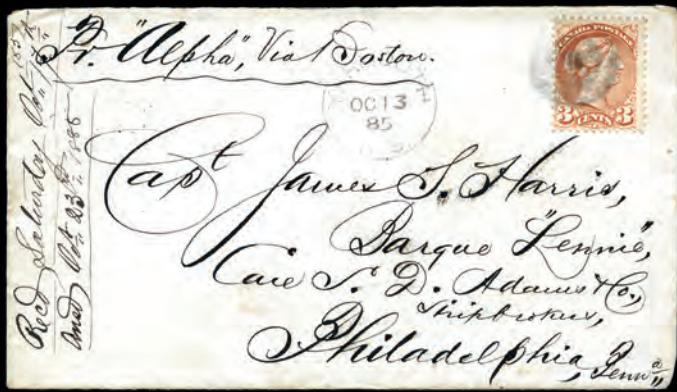 Pr. "Alpha", Via Boston.
CANADA POSTAGE
3 CENTS 3
OC 13
85
Capt James S. Harris,
Barque "Lennie",
Care S. D. Adams & Co,
Shipbrokers,
Philadelphia,
Penna
Recd Saturday Oct 1885
Ansd Oct 23rd 1885